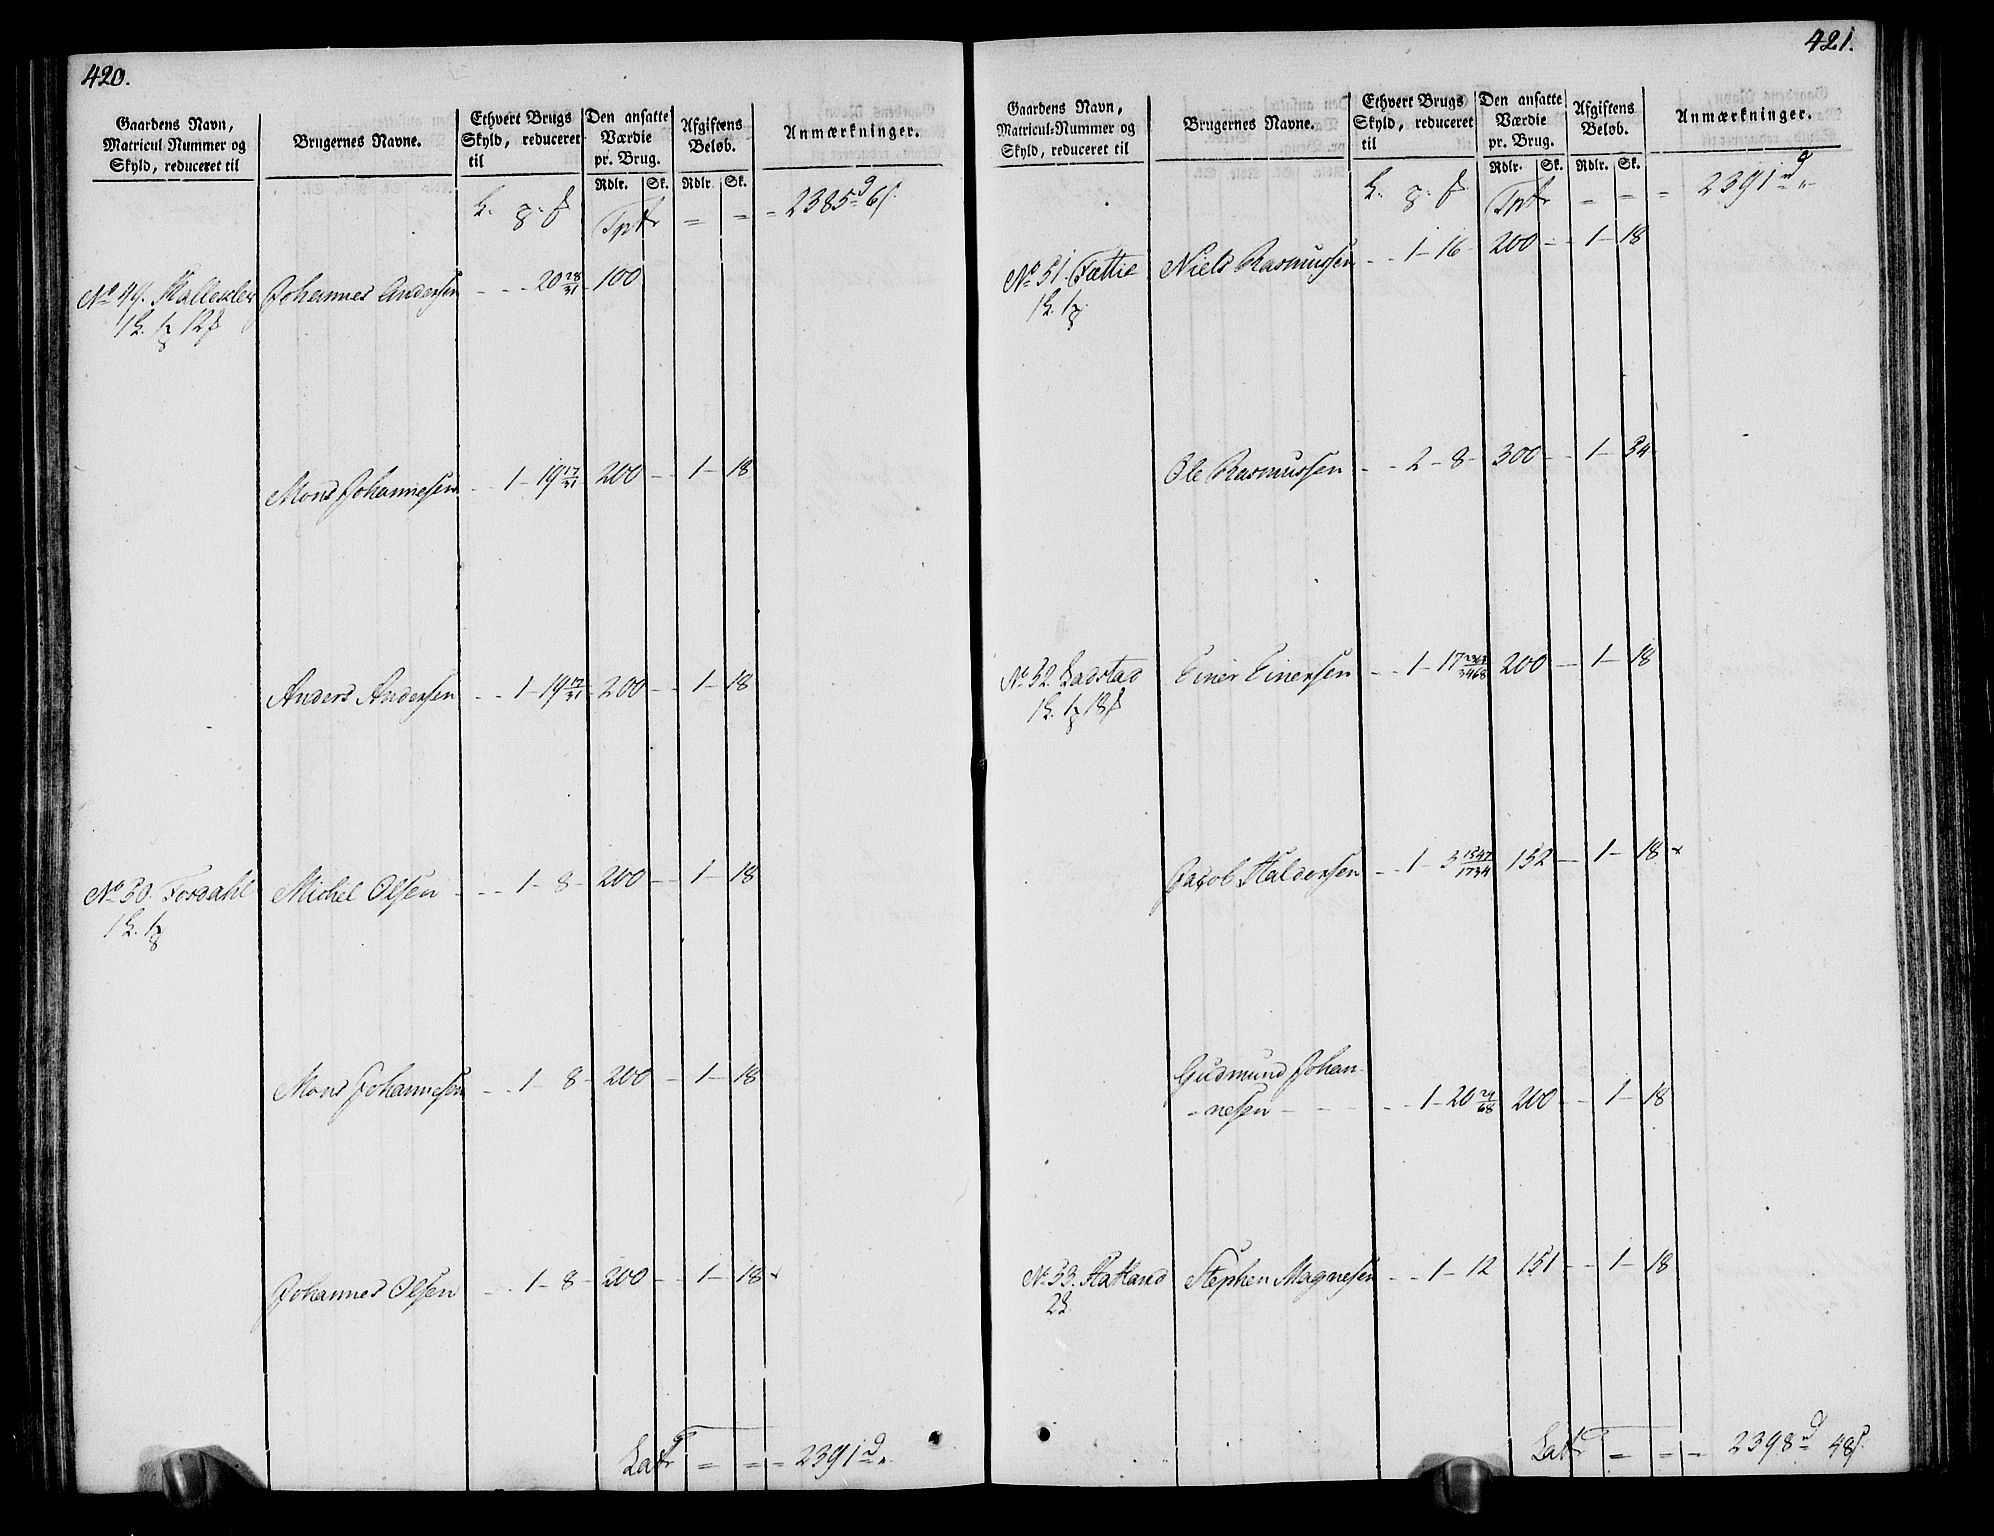 420.
Gaardens Navn,
Matricul Nummer og
Skyld, reduceret til
Brugernes Navne.
Ethvert Brugs
Skyld, reduceret
til
Den ansatte
Værdie
pr. Brug.
Rdlr. Sk.
Afgiftens
Beløb.
Rdlr. Sk.
Anmærkninger.
Tpt = = = 2385 d 6 s.
No 49. Johannes Andersen - - - 20 28/31 - 100
1 12
Mons Johannesen - - 1 - 19 17/31 - 200 - - 1 - 18
Anders Andersen - - 1 - 19 17/31 - 200 - - 1 - 18
No 50. Fosdahl Michel Olsen - - - 1 - 8 - 200 - - 1 - 18
Mons Johannesen - - 1 - 8 - 200 - - 1 - 18
Johannes Olsen - - 1 - 8 - 200 - - 1 - 18
Lat = = = 2391 d
421.
Gaardens Navn,
Matricul-Nummer og
Skyld, reduceret til
Brugernes Navne.
Ethvert Brugs
Skyld, reduceret
til
Den ansatte
Værdie
pr. Brug.
Rdlr. Sk.
Afgiftens
Beløb.
Rdlr. Sk.
Anmærkninger.
Tpt = = = 2391 d
No 51. Tættie Niels Rasmussen - - 1 - 16 - 200 - - 1 - 18
Ole Rasmussen - - 2 - 8 - 300 - - 1 - 54
No 52. Ladstad Einer Einersen - - 1 - 17 200 - 1 - 18
1 18
Jacob Haldorsen - - 1 - 3 1347/1734 - 152 - 1 - 18
Gudmund Johan-
-nesen - - - - - 1 - 20 29/68 - 200 - - 1 - 18
No 53. Flatland Stephen Magnesen - - 1 - 12 151 - - 1 - 18
Lat = = = 2398 d 48 s.